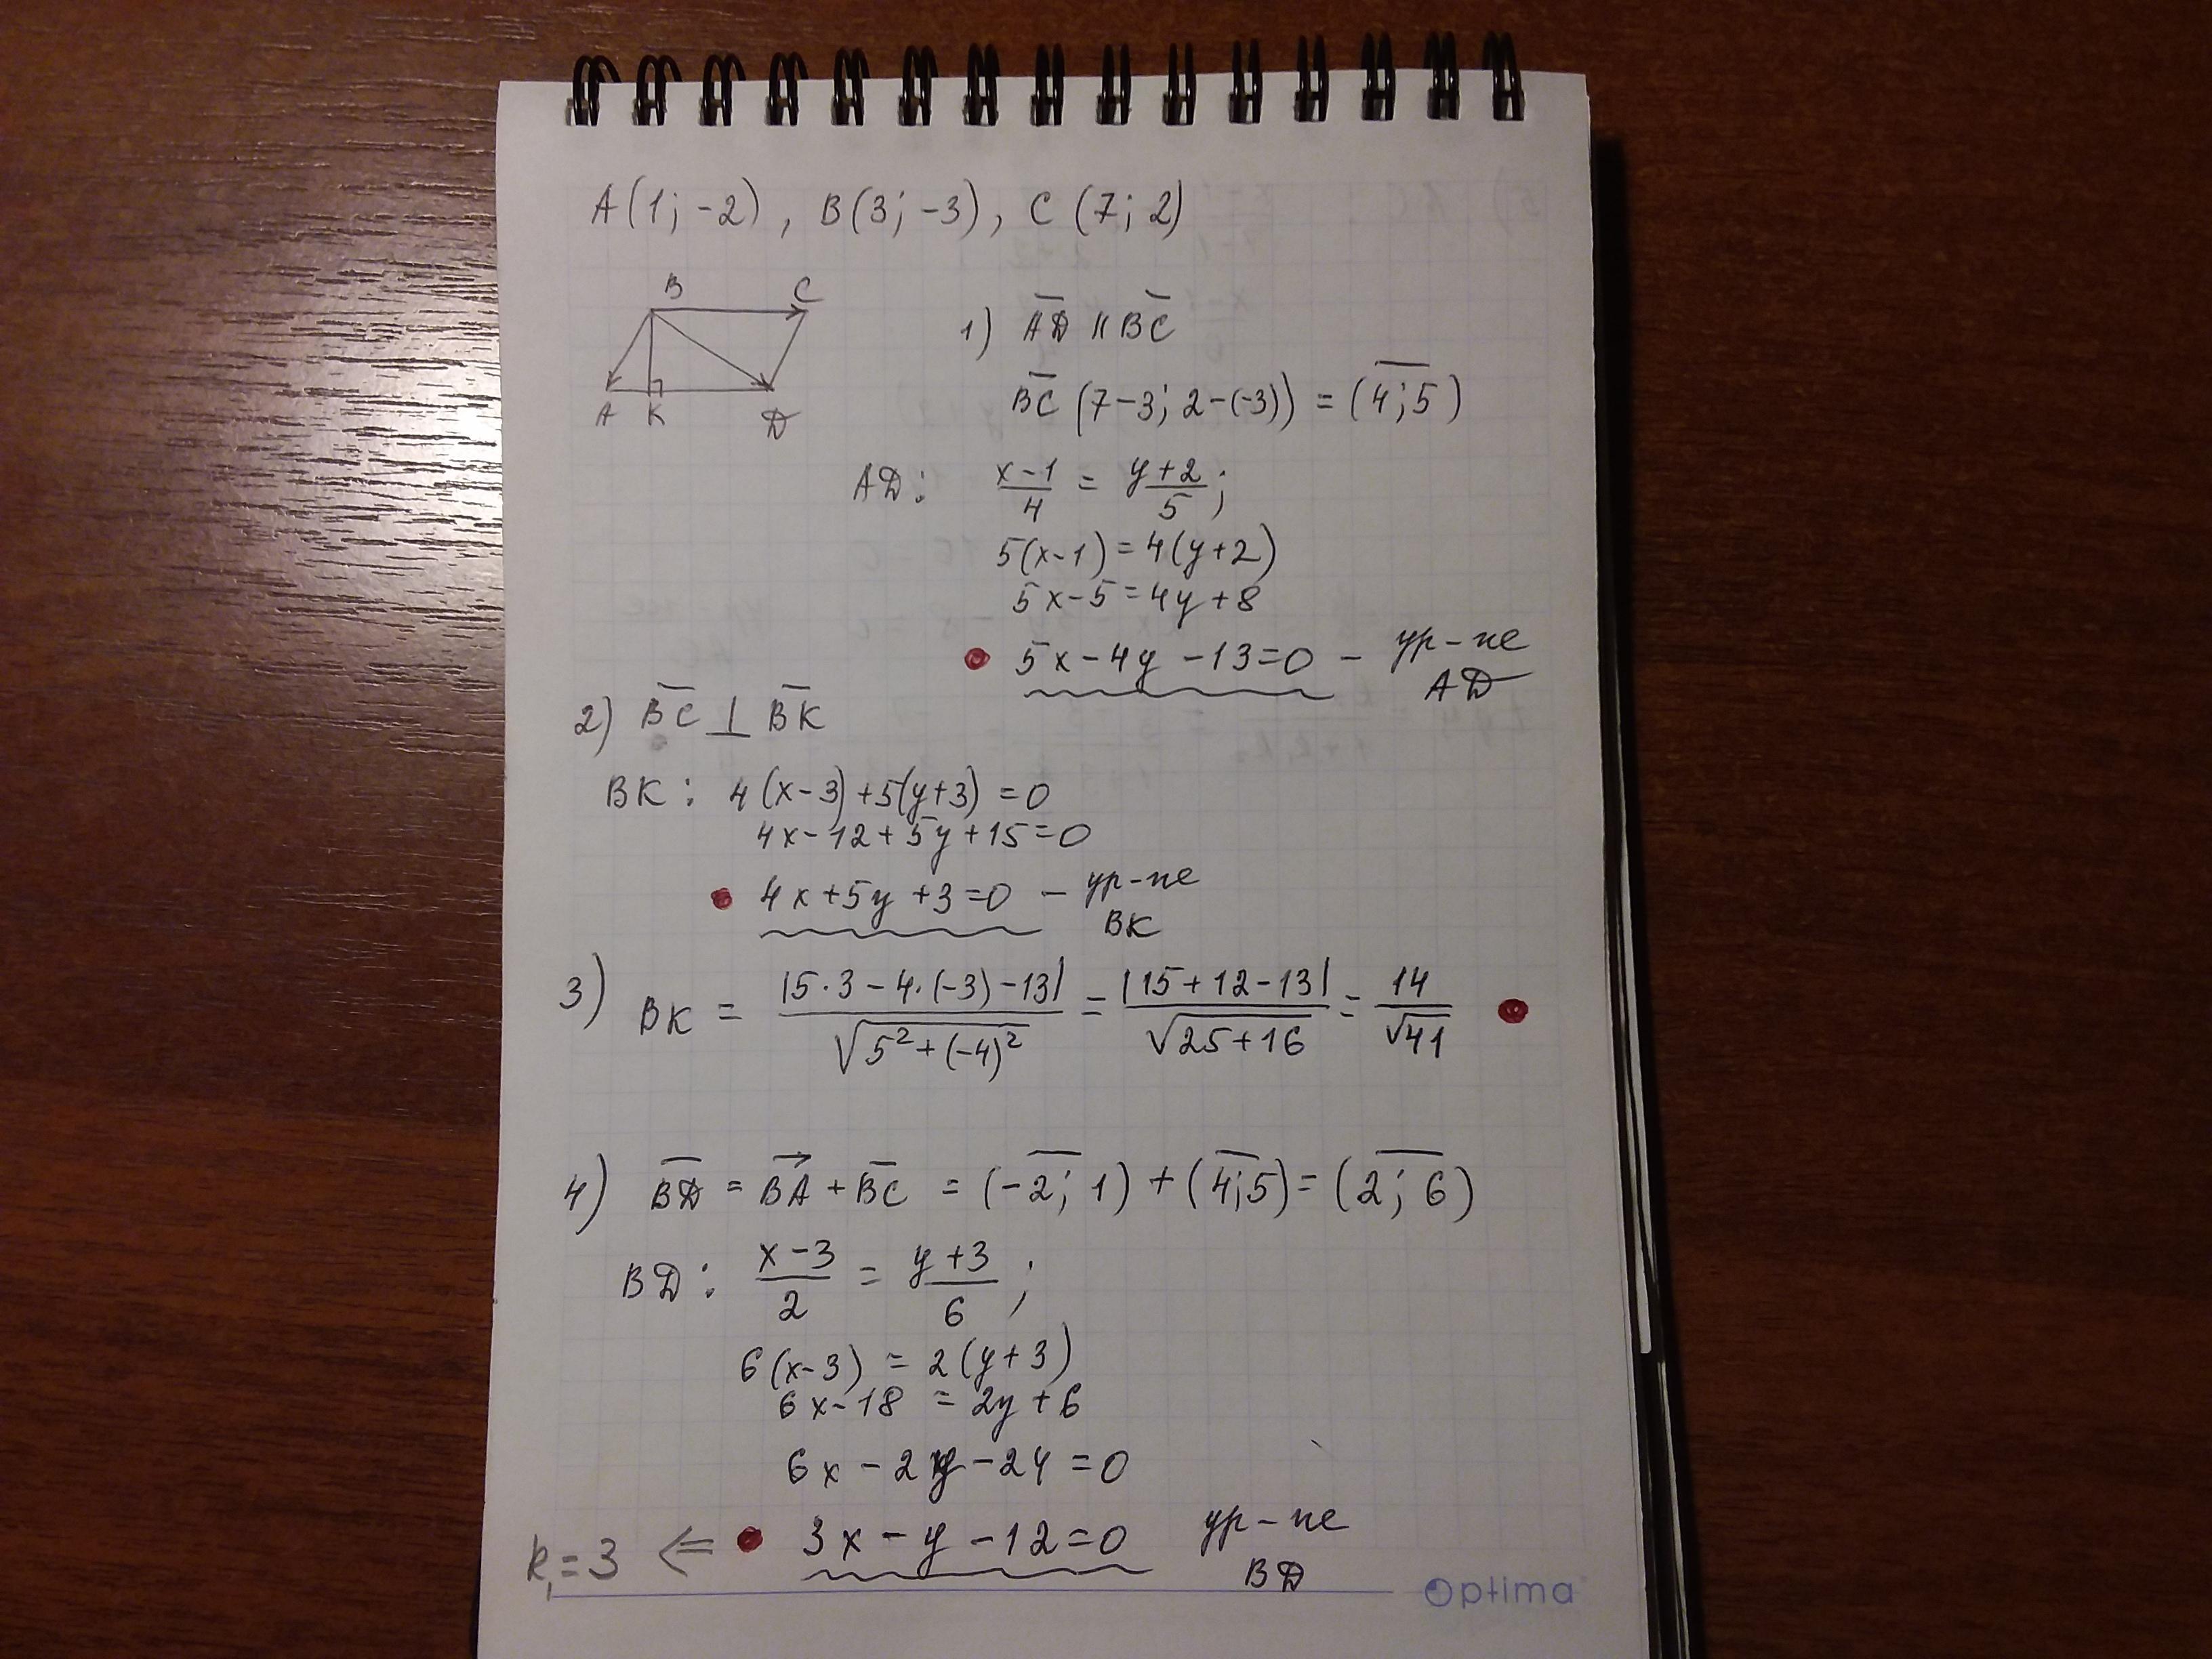 A(1; -2), B(3; -3), C(7; 2)
B C
A K D
1) AD || BC
BC (7-3; 2-(-3)) = (4; 5)
AD: (x-1)/4 = (y+2)/5;
5(x-1) = 4(y+2)
5x-5 = 4y+8
5x-4y-13=0 - ур-не
AD
2) BC ⊥ BK
BK: 4(x-3)+5(y+3)=0
4x-12+5y+15=0
4x+5y+3=0 - ур-не
BK
3) BK = |5·3-4·(-3)-13|/√(5²+(-4)²) = |15+12-13|/√(25+16) = 14/√41
4) BD = BA + BC = (-2; 1) + (4; 5) = (2; 6)
BD: (x-3)/2 = (y+3)/6;
6(x-3) = 2(y+3)
6x-18 = 2y+6
6x-2y-24=0
k₁=3 ⇐ 3x-y-12=0 ур-не
BD
Optima